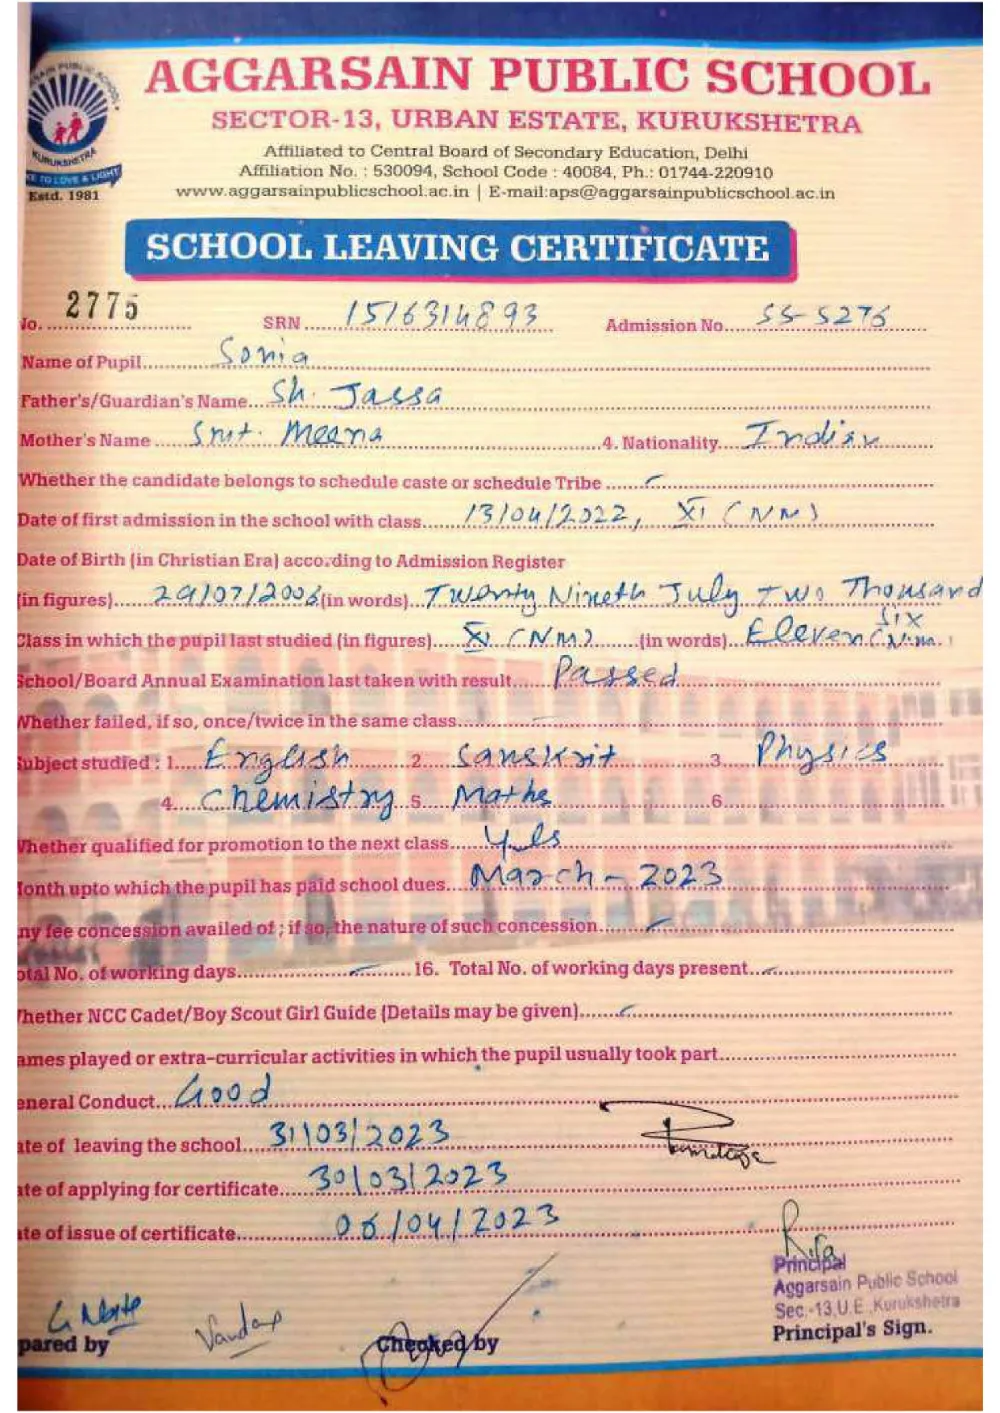 AGGARSAIN PUBLIC SCHOOL
SECTOR-13, URBAN ESTATE, KURUKSHETRA
Affiliated to Central Board of Secondary Education, Delhi
Affiliation No. : 530094, School Code : 40084, Ph.: 01744-220910
www.aggarsainpublicschool.ac.in | E-mail:aps@aggarsainpublicschool.ac.in
KURUKSHETRA
Estd. 1981
SCHOOL LEAVING CERTIFICATE
No. 2775 SRN 1516314893 Admission No. SS-5276
Name of Pupil Sonia
Father's/Guardian's Name Sh. Jassa
Mother's Name Smt. Meena 4. Nationality Indian
Whether the candidate belongs to schedule caste or schedule Tribe
Date of first admission in the school with class 13/04/2022, XI (NM)
Date of Birth (in Christian Era) according to Admission Register
(in figures) 29/07/2006 (in words) Twenty Nineth July Two Thousand
Six
Class in which the pupil last studied (in figures) XI (NM) (in words) Eleven (N.M.)
School/Board Annual Examination last taken with result Passed
Whether failed, if so, once/twice in the same class
Subject studied : 1. English 2. Sanskrit 3. Physics
4. Chemistry 5. Maths 6.
Whether qualified for promotion to the next class Yes
Month upto which the pupil has paid school dues March - 2023
ny fee concession availed of ; if so, the nature of such concession
otal No. of working days 16. Total No. of working days present
hether NCC Cadet/Boy Scout Girl Guide (Details may be given)
ames played or extra-curricular activities in which the pupil usually took part
eneral Conduct Good
ate of leaving the school 31/03/2023
ate of applying for certificate 30/03/2023
ate of issue of certificate 06/04/2023
Principal
Aggarsain Public School
Sec.-13,U.E.,Kurukshetra
pared by Checked by Principal's Sign.